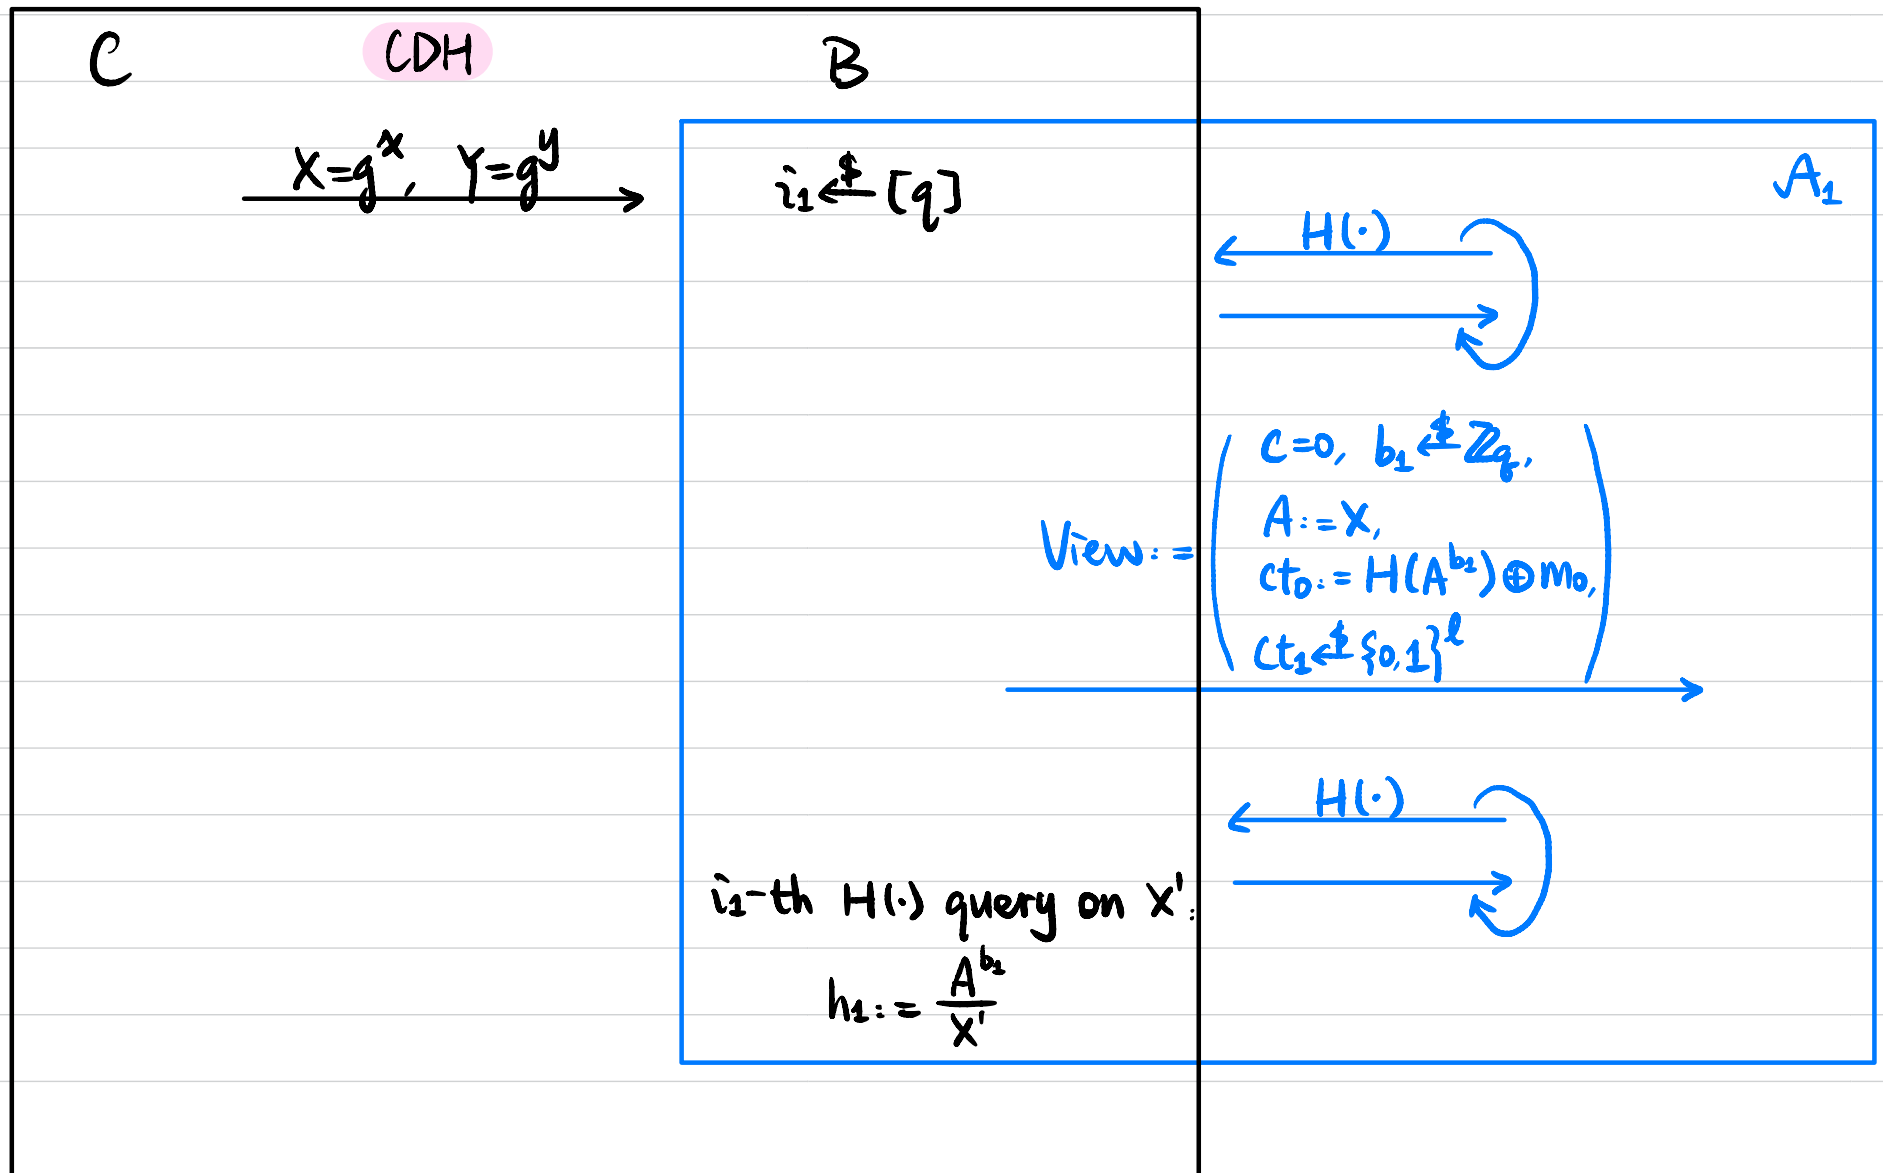 C CDH B
X=g^x, Y=g^y
i₁ ←$ [q]
A₁
H(·)
C=0, b₁ ←$ ℤq,
A:=X,
View:=
ct₀:=H(A^b₁)⊕m₀,
ct₁ ←$ {0,1}^ℓ
H(·)
i₁-th H(·) query on X':
h₁:= A^b₁ / X'